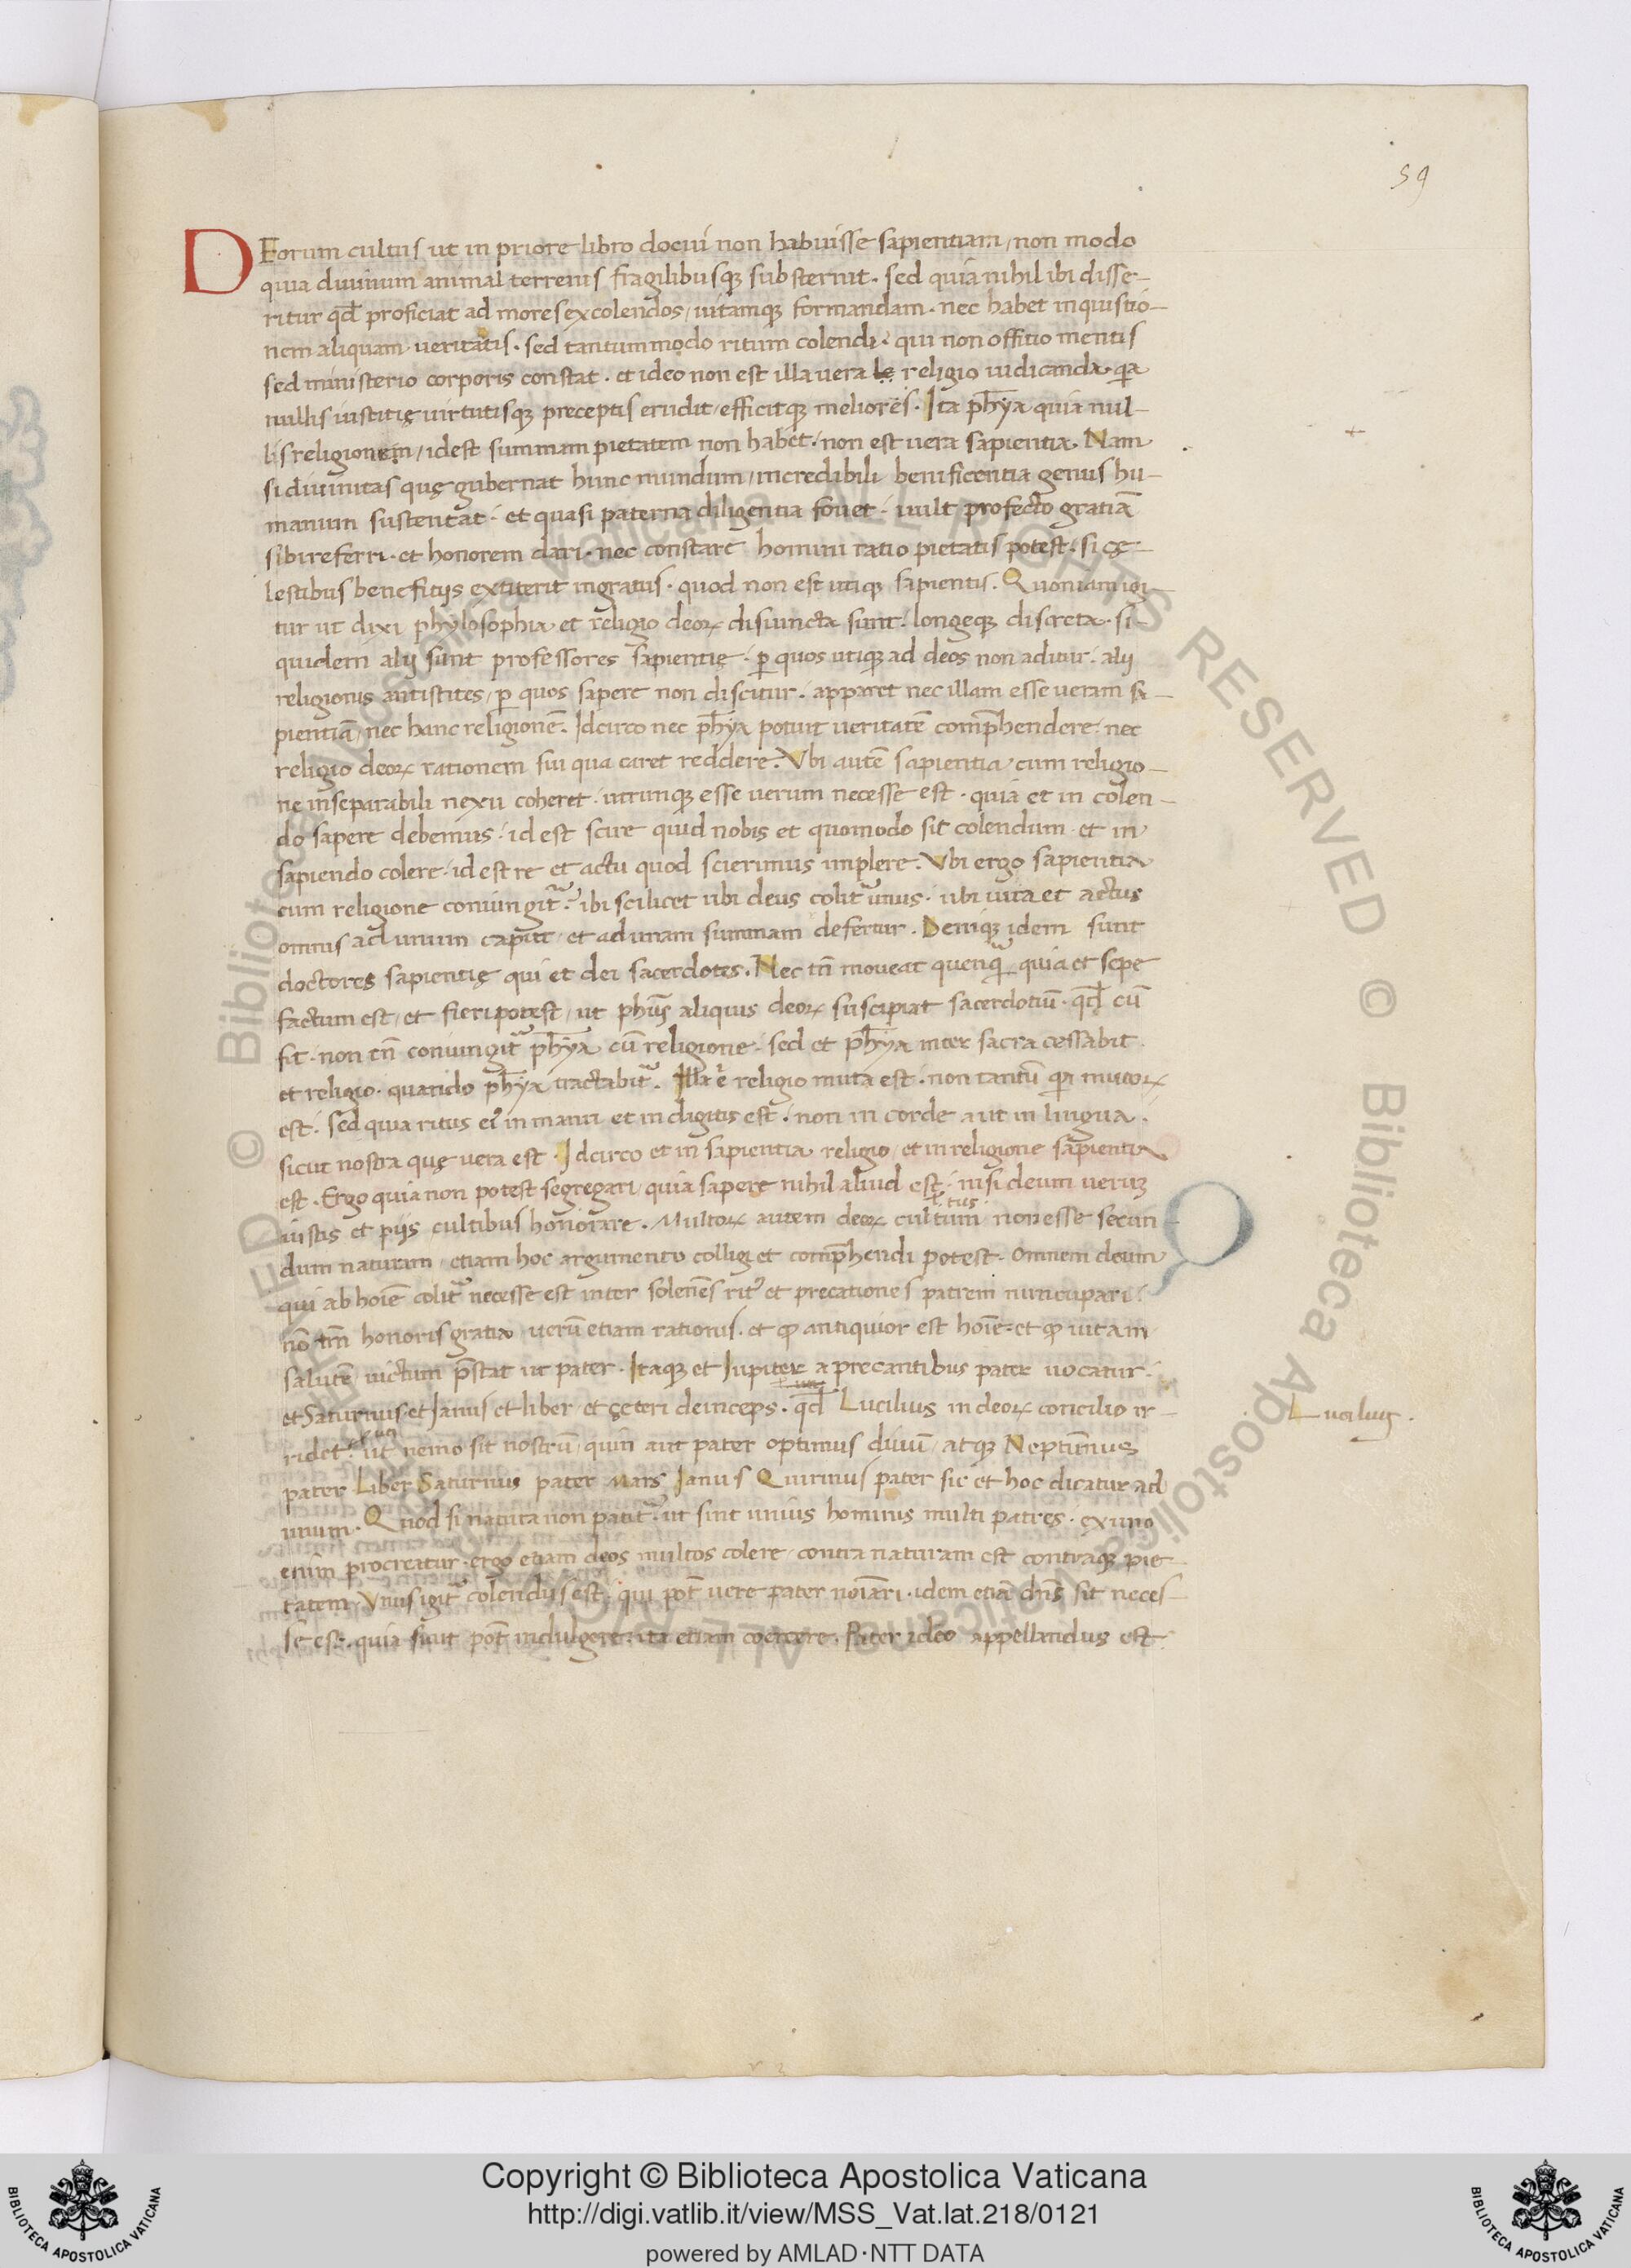 59
DEorum cultus ut in priore libro docui non habuisse sapientiam / non modo
quia diuinum animal terrenis fragilibusqȝ substernit . sed quia nihil ibi disse-
ritur qđ proficiat ad mores excolendos / uitamqȝ formandam . nec habet inquisitio-
nem aliquam ueritatis . sed tantummodo ritum colendi . qui non offitio mentis
sed ministerio corporis constat . et ideo non est illa uera religio iudicanda . qa
nullis iustitię uirtutisqȝ preceptis erudit / efficitqȝ meliores . Ita ph̄ya quia nul-
lis religionem / idest summam pietatem non habet . non est uera sapientia . Nam
si diuinitas quę gubernat hunc mundum / incredibili benificentia genus hu-
manum sustentat . et quasi paterna diligentia fouet . uult profecto gratiā
sibi referri . et honorem dari . nec constare homini ratio pietatis potest . si cę-
lestibus benefitijs extiterit ingratus . quod non est utiqȝ sapientis . Quoniam igi-
tur ut dixi phylosophia et religio deoꝝ disiuncta sunt . longeqȝ discreta . si-
quidem alij sunt professores sapientię . ꝑ quos utiqȝ ad deos non aditur . alij
religionis antistites / ꝑ quos sapere non discitur . apparet nec illam esse ueram sa-
pientiā / nec hanc religionē . Idcirco nec ph̄ya potuit ueritatē comp̄hendere . nec
religio deoꝝ rationem sui qua caret reddere . Vbi autē sapientia cum religio-
ne inseparabili nexu coheret . utrunqȝ esse uerum necesse est . quia et in colen-
do sapere debemus . id est scire quid nobis et quomodo sit colendum . et in
sapiendo colere . id est re et actu quod scierimus implere . Vbi ergo sapientia
cum religione coniungit᷑ . ibi scilicet ubi deus colit᷑ unus . ubi uita et actus
omnis ad unum caput / et ad unam summam defertur . Deniqȝ idem sunt
doctores sapientię qui et dei sacerdotes . Nec tn̄ moueat quenq̄ quia et sepe
factum est / et fieri potest / ut phūs aliquis deoꝝ suscipiat sacerdotiū . qđ cū
fit . non tn̄ coniungit᷑ ph̄ya cū religione . sed et ph̄ya inter sacra cessabit .
et religio . quando ph̄ya tractabit᷑ . Illa .n. religio muta est . non tantū qa mutoꝝ
est . sed quia ritus ei᷒ in manu et in digitis est . non in corde aut in lingua .
sicut nostra quę uera est . Idcirco et in sapientia religio / et in religione sapientia
est . Ergo quia non potest segregari / quia sapere nihil aliud est . nisi deum ueruȝ
tus
iustis et pijs cultibus honorare . Multoꝝ autem deoꝝ cultum non esse secun-
dum naturam / etiam hoc argumento colligi et comp̄hendi potest . Omnem deum
qui ab hoīe colit᷑ necesse est inter solenēs rit᷒ et precationes patrem nuncupari .
nō tm̄ honoris gratia uerū etiam rationis . et ꝙ antiquior est hoīe . et ꝙ uitam
salutē uictum p̄stat ut pater . Itaqȝ et Iupiter a precantibus pater uocatur .
et Saturnus . et Ianus et liber . et cęteri deinceps . qđ Lucilius in deoꝝ concilio ir-
Lucilius .
ridet . ut nemo sit nostrū / quin aut pater optimus diuū / atqȝ Neptumnus
pater Liber Saturnus pater Mars Ianus Quirinus pater sic et hoc dicatur ad
unum . Quod si natura non patit᷑ . ut sint unius hominis multi patres . ex uno
enim procreatur . ergo etiam deos multos colere / contra naturam est contraqȝ pie-
tatem . Vnus igit᷑ colendus est . qui pōt uere pater noīari . idem etiā dn̄s sit neces-
se est . quia sicut pōt indulgere . ita etiam coercere . Pater ideo appellandus est
Copyright © Biblioteca Apostolica Vaticana
http://digi.vatlib.it/view/MSS_Vat.lat.218/0121
powered by AMLAD·NTT DATA
BIBLIOTECA APOSTOLICA VATICANA
BIBLIOTECA APOSTOLICA VATICANA